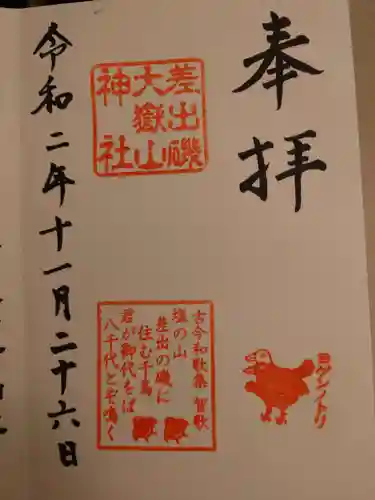 奉拝
差出磯
大嶽山
神社
ヨゲンノトリ
古今和歌集 賀歌
塩の山
差出の磯に
住む千鳥
君が御代をば
八千代とぞ鳴く
令和二年十一月二十六日